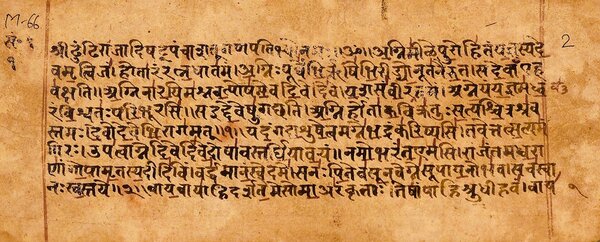 M-66
2
श्रीढुंढिराजादिषट्पंचाशद्गणपतिभ्योनमः॥ॐ॥अग्निमीळेपुरोहितंयज्ञस्यदे
वमृत्विजं।होतारंरत्नधातमं।अग्निःपूर्वेभिर्ऋषिभिरीड्योनूतनैरुत।सदेवाँएह
वक्षति।अग्निनारयिमश्नवत्पोषमेवदिवेदिवे।यशसंवीरवत्तमं।अग्नेयंयज्ञमध्व
रंविश्वतःपरिभूरसि।सइद्देवेषुगच्छति।अग्निर्होताकविक्रतुःसत्यश्चित्रश्रव
स्तमः।देवोदेवेभिरागमत्॥१॥यदंगदाशुषेत्वमग्नेभद्रंकरिष्यसि।तवेत्तत्सत्यमं
गिरः।उपत्वाग्नेदिवेदिवेदोषावस्तर्धियावयं।नमोभरंतएमसि।राजंतमध्वरा
णांगोपामृतस्यदीदिविं।वर्द्धमानंस्वेदमे।सनःपितेवसूनवेग्नेसूपायनोभव।सचस्वा
नःस्वस्तये॥२॥वायवायाहिदर्शतेमेसोमाअरंकृताः।तेषांपाहिश्रुधीहवं।वाय